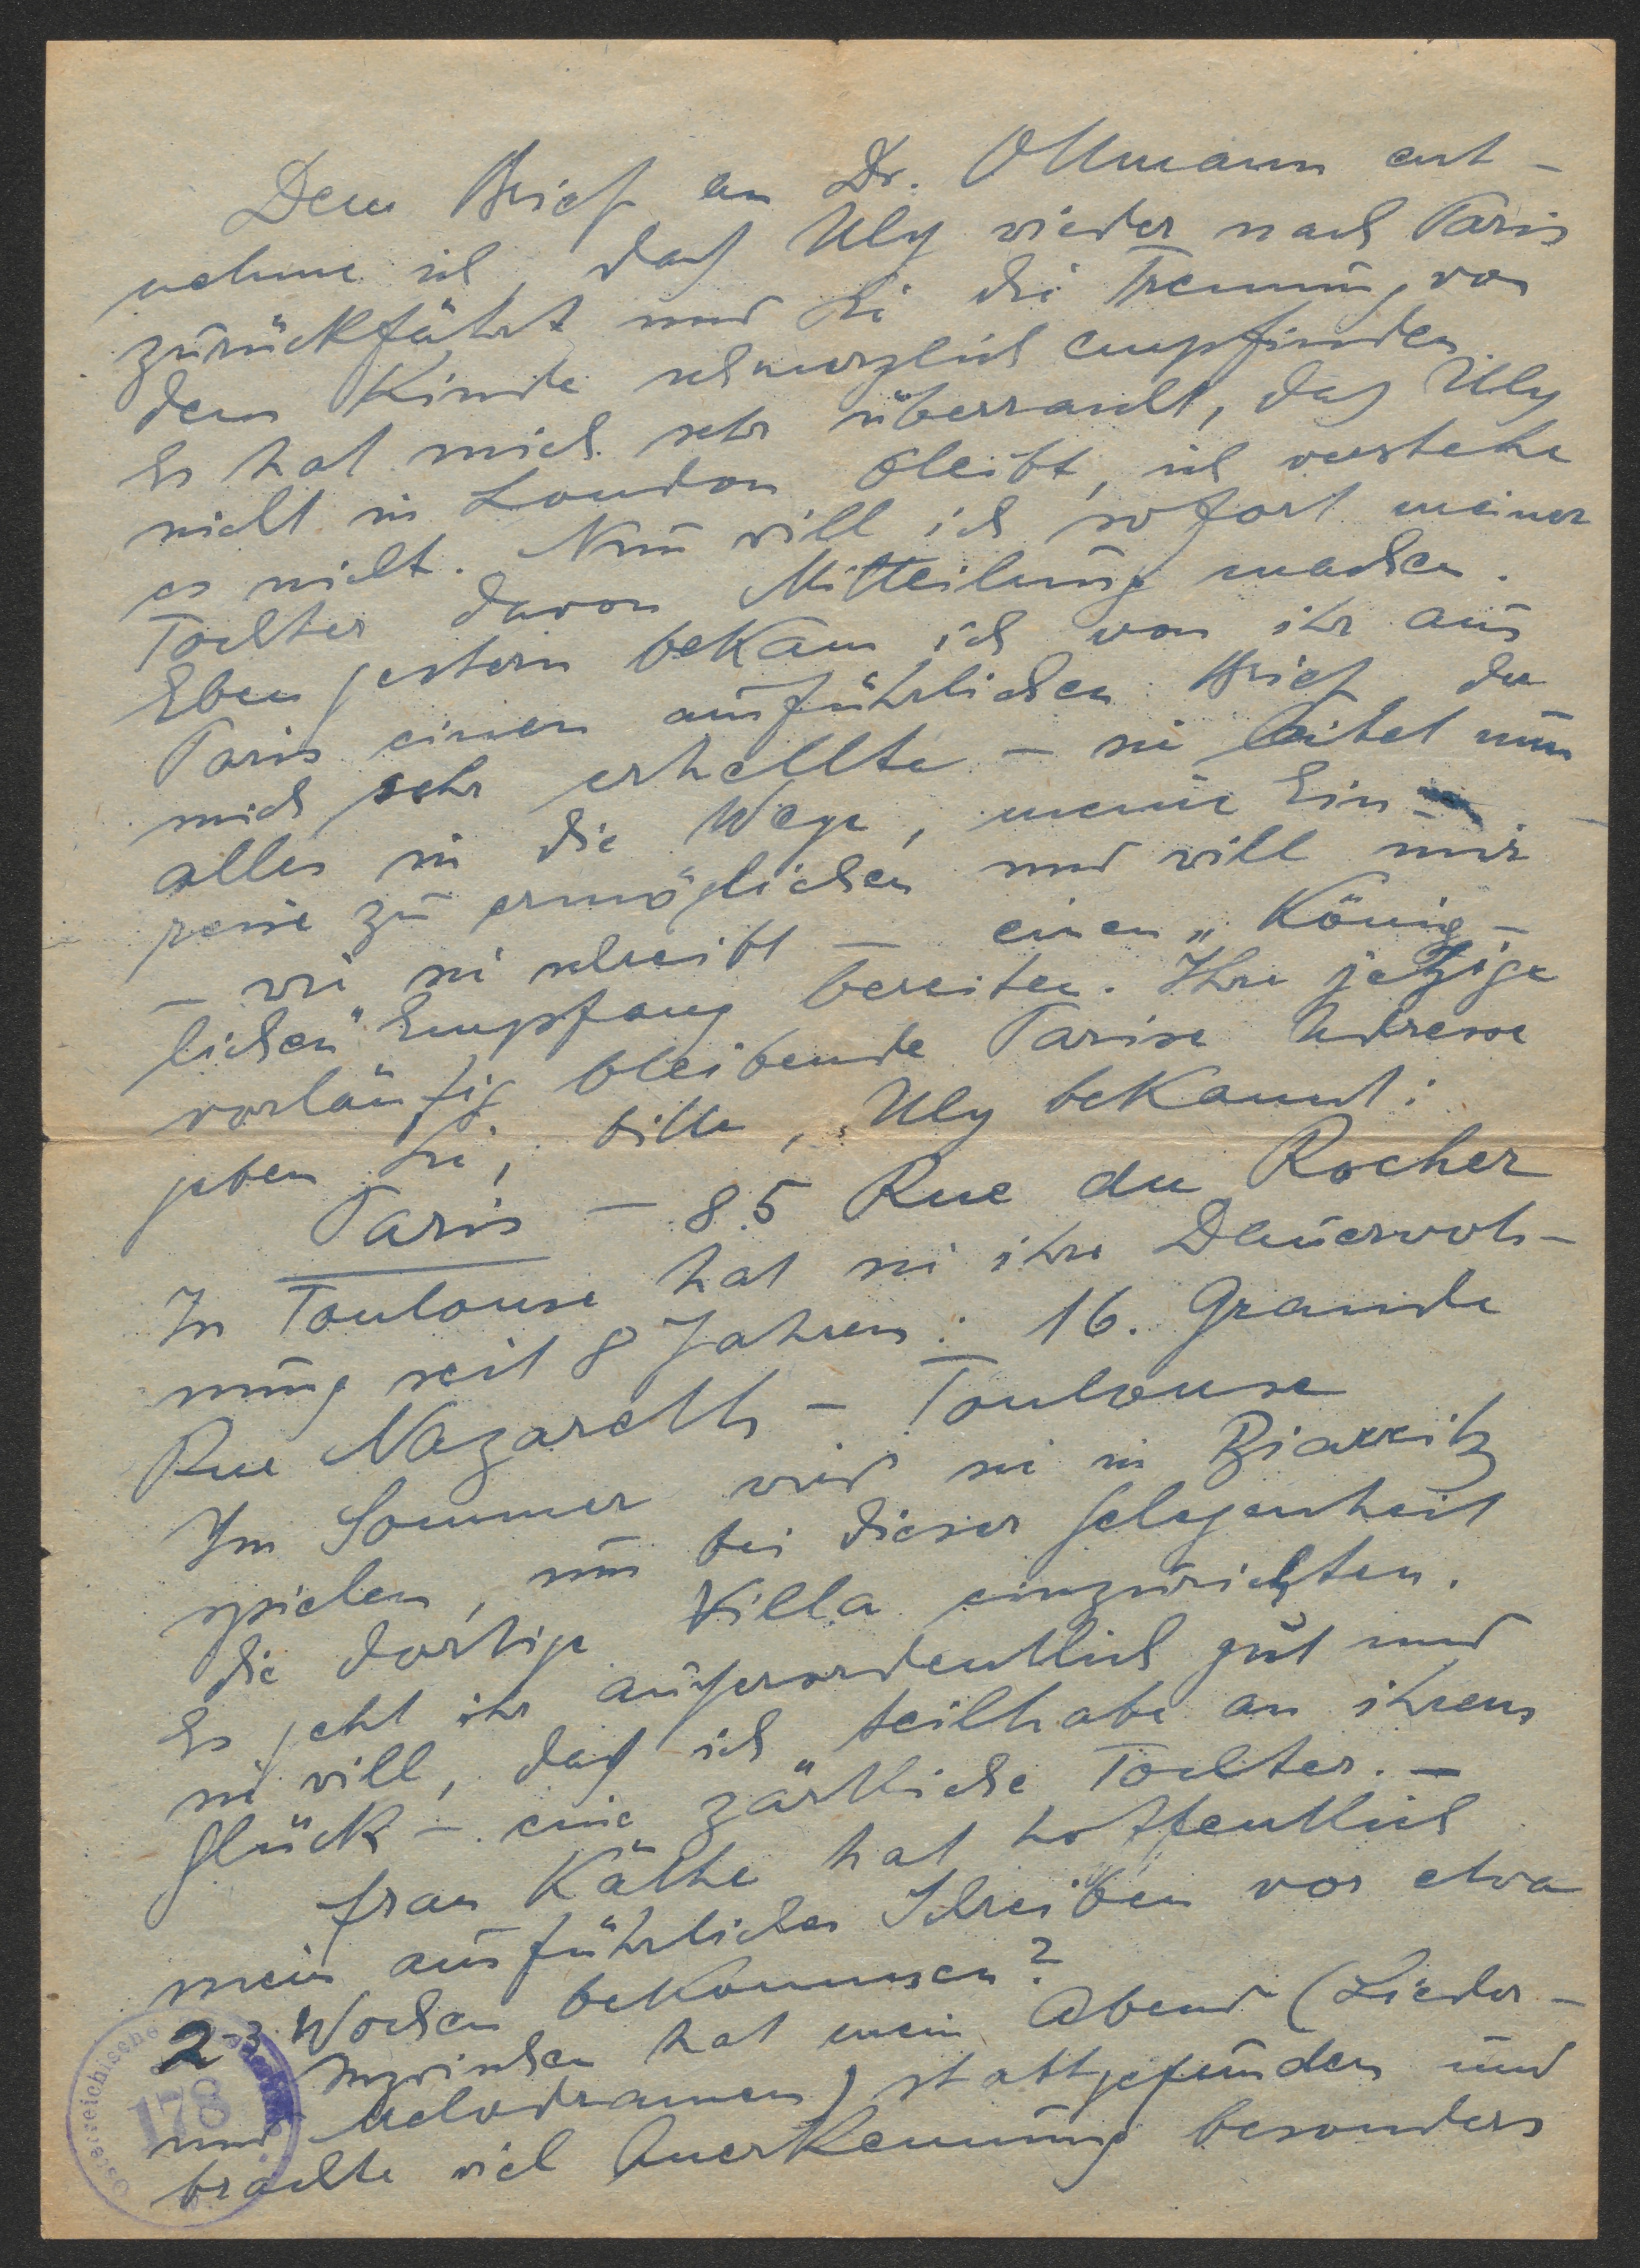 Dem Brief an Dr. Ollmann ent-
nehme ich, daß Uly wieder nach Paris
zurückfährt und Sie die Trennung von
dem Kinde schmerzlich empfinden.
Es hat mich sehr überrascht, daß Uly
nicht in London bleibt, ich verstehe
es nicht. Nun will ich sofort meiner
Tochter davon Mitteilung machen.
Eben gestern bekam ich von ihr aus
Paris einen ausführlichen Brief, der
mich sehr erhellte – sie leitet nun
alles in die Wege, meine Ein-
reise zu ermöglichen und will mir
– wie sie schreibt – einen „König-
lichen" Empfang bereiten. Ihre jetzige
vorläufig bleibende Pariser Adresse
geben Sie, bitte, Uly bekannt:
Paris – 85 Rue du Rocher
In Toulouse hat sie ihre Dauerwoh-
nung seit 8 Jahren: 16. Grande
Rue Nazareth – Toulouse
Im Sommer wird sie in Biarritz
spielen, um bei dieser Gelegenheit
die dortige Villa einzurichten.
Es geht ihr außerordentlich gut und
sie will, daß ich teilhabe an ihrem
Glück – eine zärtliche Tochter. –
Frau Käthe hat hoffentlich
mein ausführliches Schreiben vor etwa
2-3 Wochen bekommen?
Inzwischen hat mein Abend (Lieder-
und Melodramen) stattgefunden und
brachte viel Anerkennung besonders
Österreichische
178